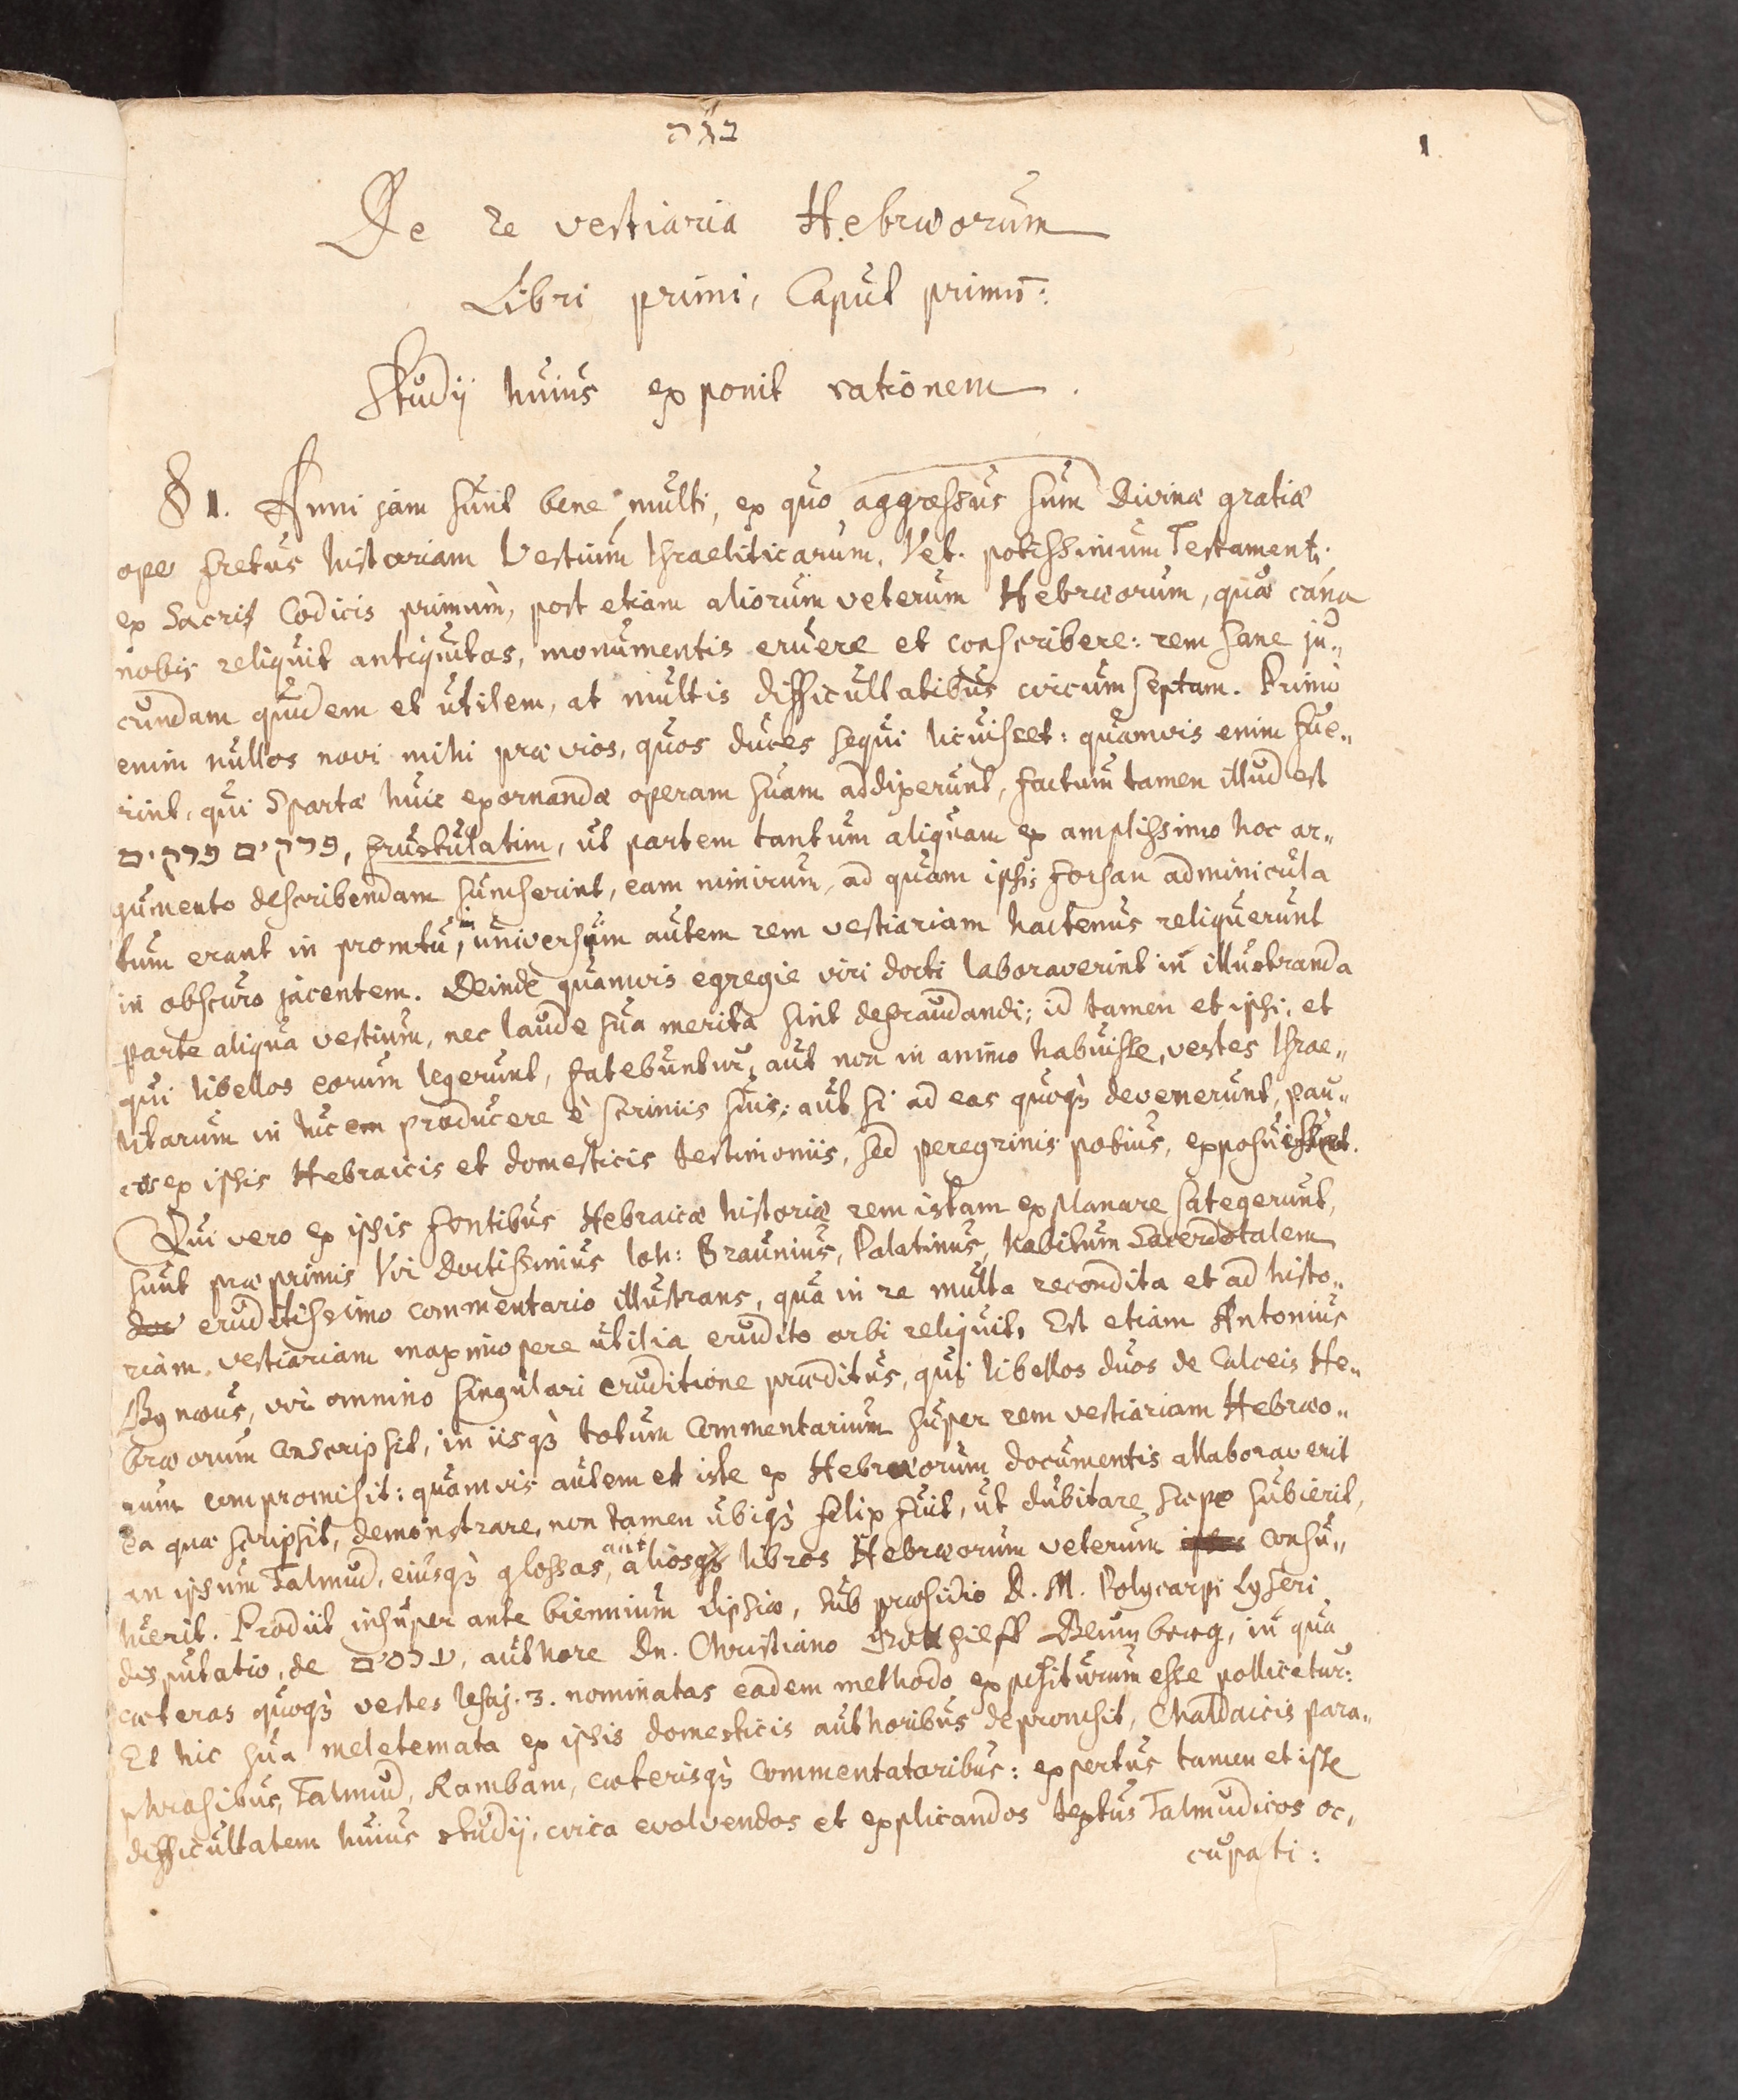 בעה
1
De re vestiaria Hebræorum
Libri primi, Caput primū:
Studij huius exponit rationem.
§ 1. Anni jam sunt bene multi, ex quo aggressus sum Divinæ gratiæ
ope fretus historiam Vestium Israeliticarum, Vet. potissimum Testamenti
ex Sacris Codicis primùm, post etiam aliorum veterum Hebræorum, quæ cana
nobis reliquit antiquitas, monumentis eruere et conscribere: rem sane ju-
cundam quidem et utilem, at multis difficultatibus circumseptam. Primò
enim nullos novi mihi prævios, quos duces sequi licuisset: quamvis enim fue-
rint, qui Spartæ huic exornandæ operam suam addixerunt, factum tamen illud est
פרקים פרקים, frustulatim, ut partem tantum aliquam ex amplissimo hoc ar-
gumento describendam sumserint, eam nimirum, ad quam ipsis forsan adminicula
tum erant in promtu, in universum autem rem vestiariam hactenus reliquerunt
in obscuro jacentem. Deinde quamvis egregie viri docti laboraverint in illustranda
parte aliqua vestium, nec laude sua merita sint defraudandi; id tamen et ipsi, et
qui libellos eorum legerunt, fatebuntur, aut non in animo habuisse, vestes Israe-
litarum in lucem producere è scriniis suis; aut si ad eas quoqꝫ devenerunt, pau-
cos ex ipsis Hebraicis et domesticis testimoniis, sed peregrinis potius, exposuisse.
Qui vero ex ipsis fontibus Hebraicæ historiæ rem istam explanare sategerunt,
sunt præprimis Vir doctissimus Ioh: Braunius, Palatinus, habitum Sacerdotalem
eruditissimo commentario illustrans, quâ in re multa recondita et ad histo-
riam vestiariam maximopere utilia erudito orbi reliquit. Est etiam Antonius
Bynæus, vir omnino singulari eruditione præditus, qui libellos duos de Calceis He-
bræorum conscripsit, in iisqꝫ totum Commentarium super rem vestiariam Hebræo-
rum compromisit: quamvis autem et iste ex Hebræorum documentis allaboraverit
ea quæ scripsit, demonstrare, non tamen ubiqꝫ felix fuit, ut dubitare sæpe subierit,
an ipsum Talmud, eiusqꝫ glossas, aut alios libros Hebræorum veterum consu-
luerit. Prodiit insuper ante biennium Lipsiæ, sub præsidio D. M. Polycarpi Lyseri
disputatio, de עכסים, authore Dn. Christiano in quâ
cæteras quoqꝫ vestes Iesaj. 3. nominatas eadem methodo expositurum esse pollicetur:
Et hic sua meletemata ex ipsis domesticis authoribus depromsit, Chaldaicis para-
phrasibus, Talmud, Rambam, cæterisqꝫ Commentatoribus: expertus tamen et iste
difficultatem huius studij, circa evolvendos et explicandos textus Talmudicos oc,
cupati: